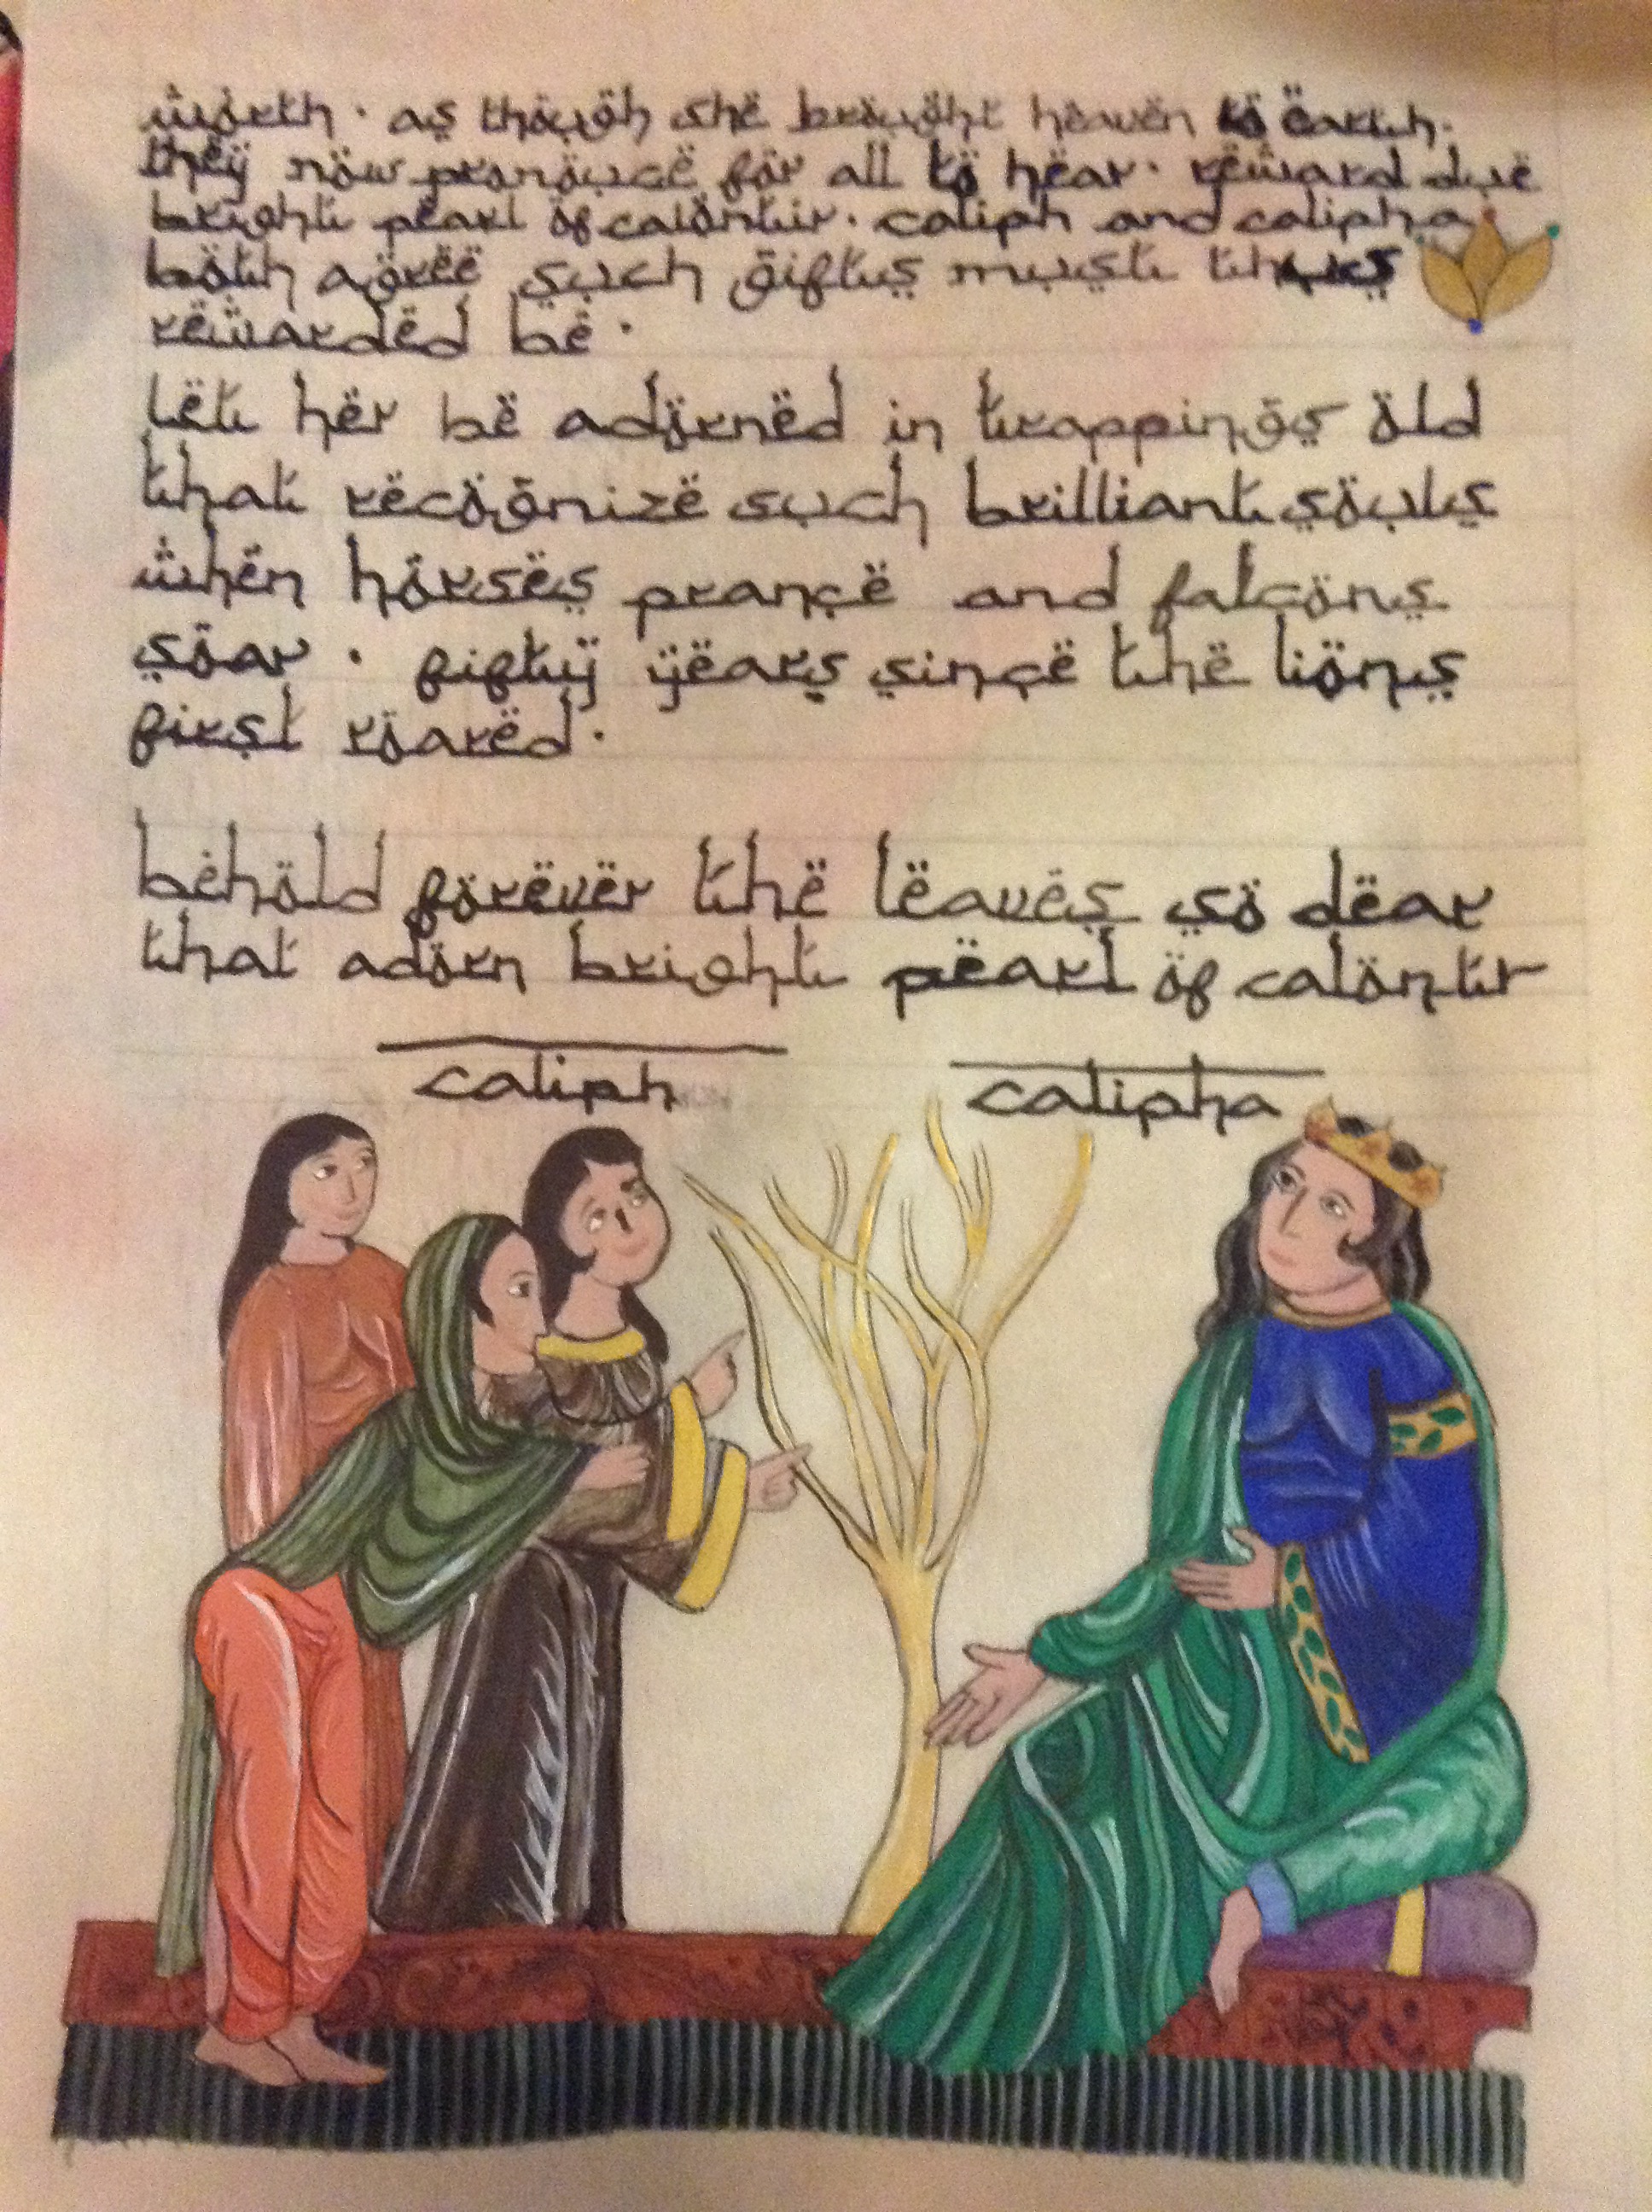 worth · as though she brought heaven to earth ·
they now pronouce for all to hear · reward due
bright pearl of calontir · caliph and calipha
both agree such gifts must thus
rewarded be ·
let her be adorned in trappings old
that recognize such brilliant souls
when horses prance and falcons
soar · fifty years since the lions
first roared ·
behold forever the leaves so dear
that adorn bright pearl of calontir
caliph calipha